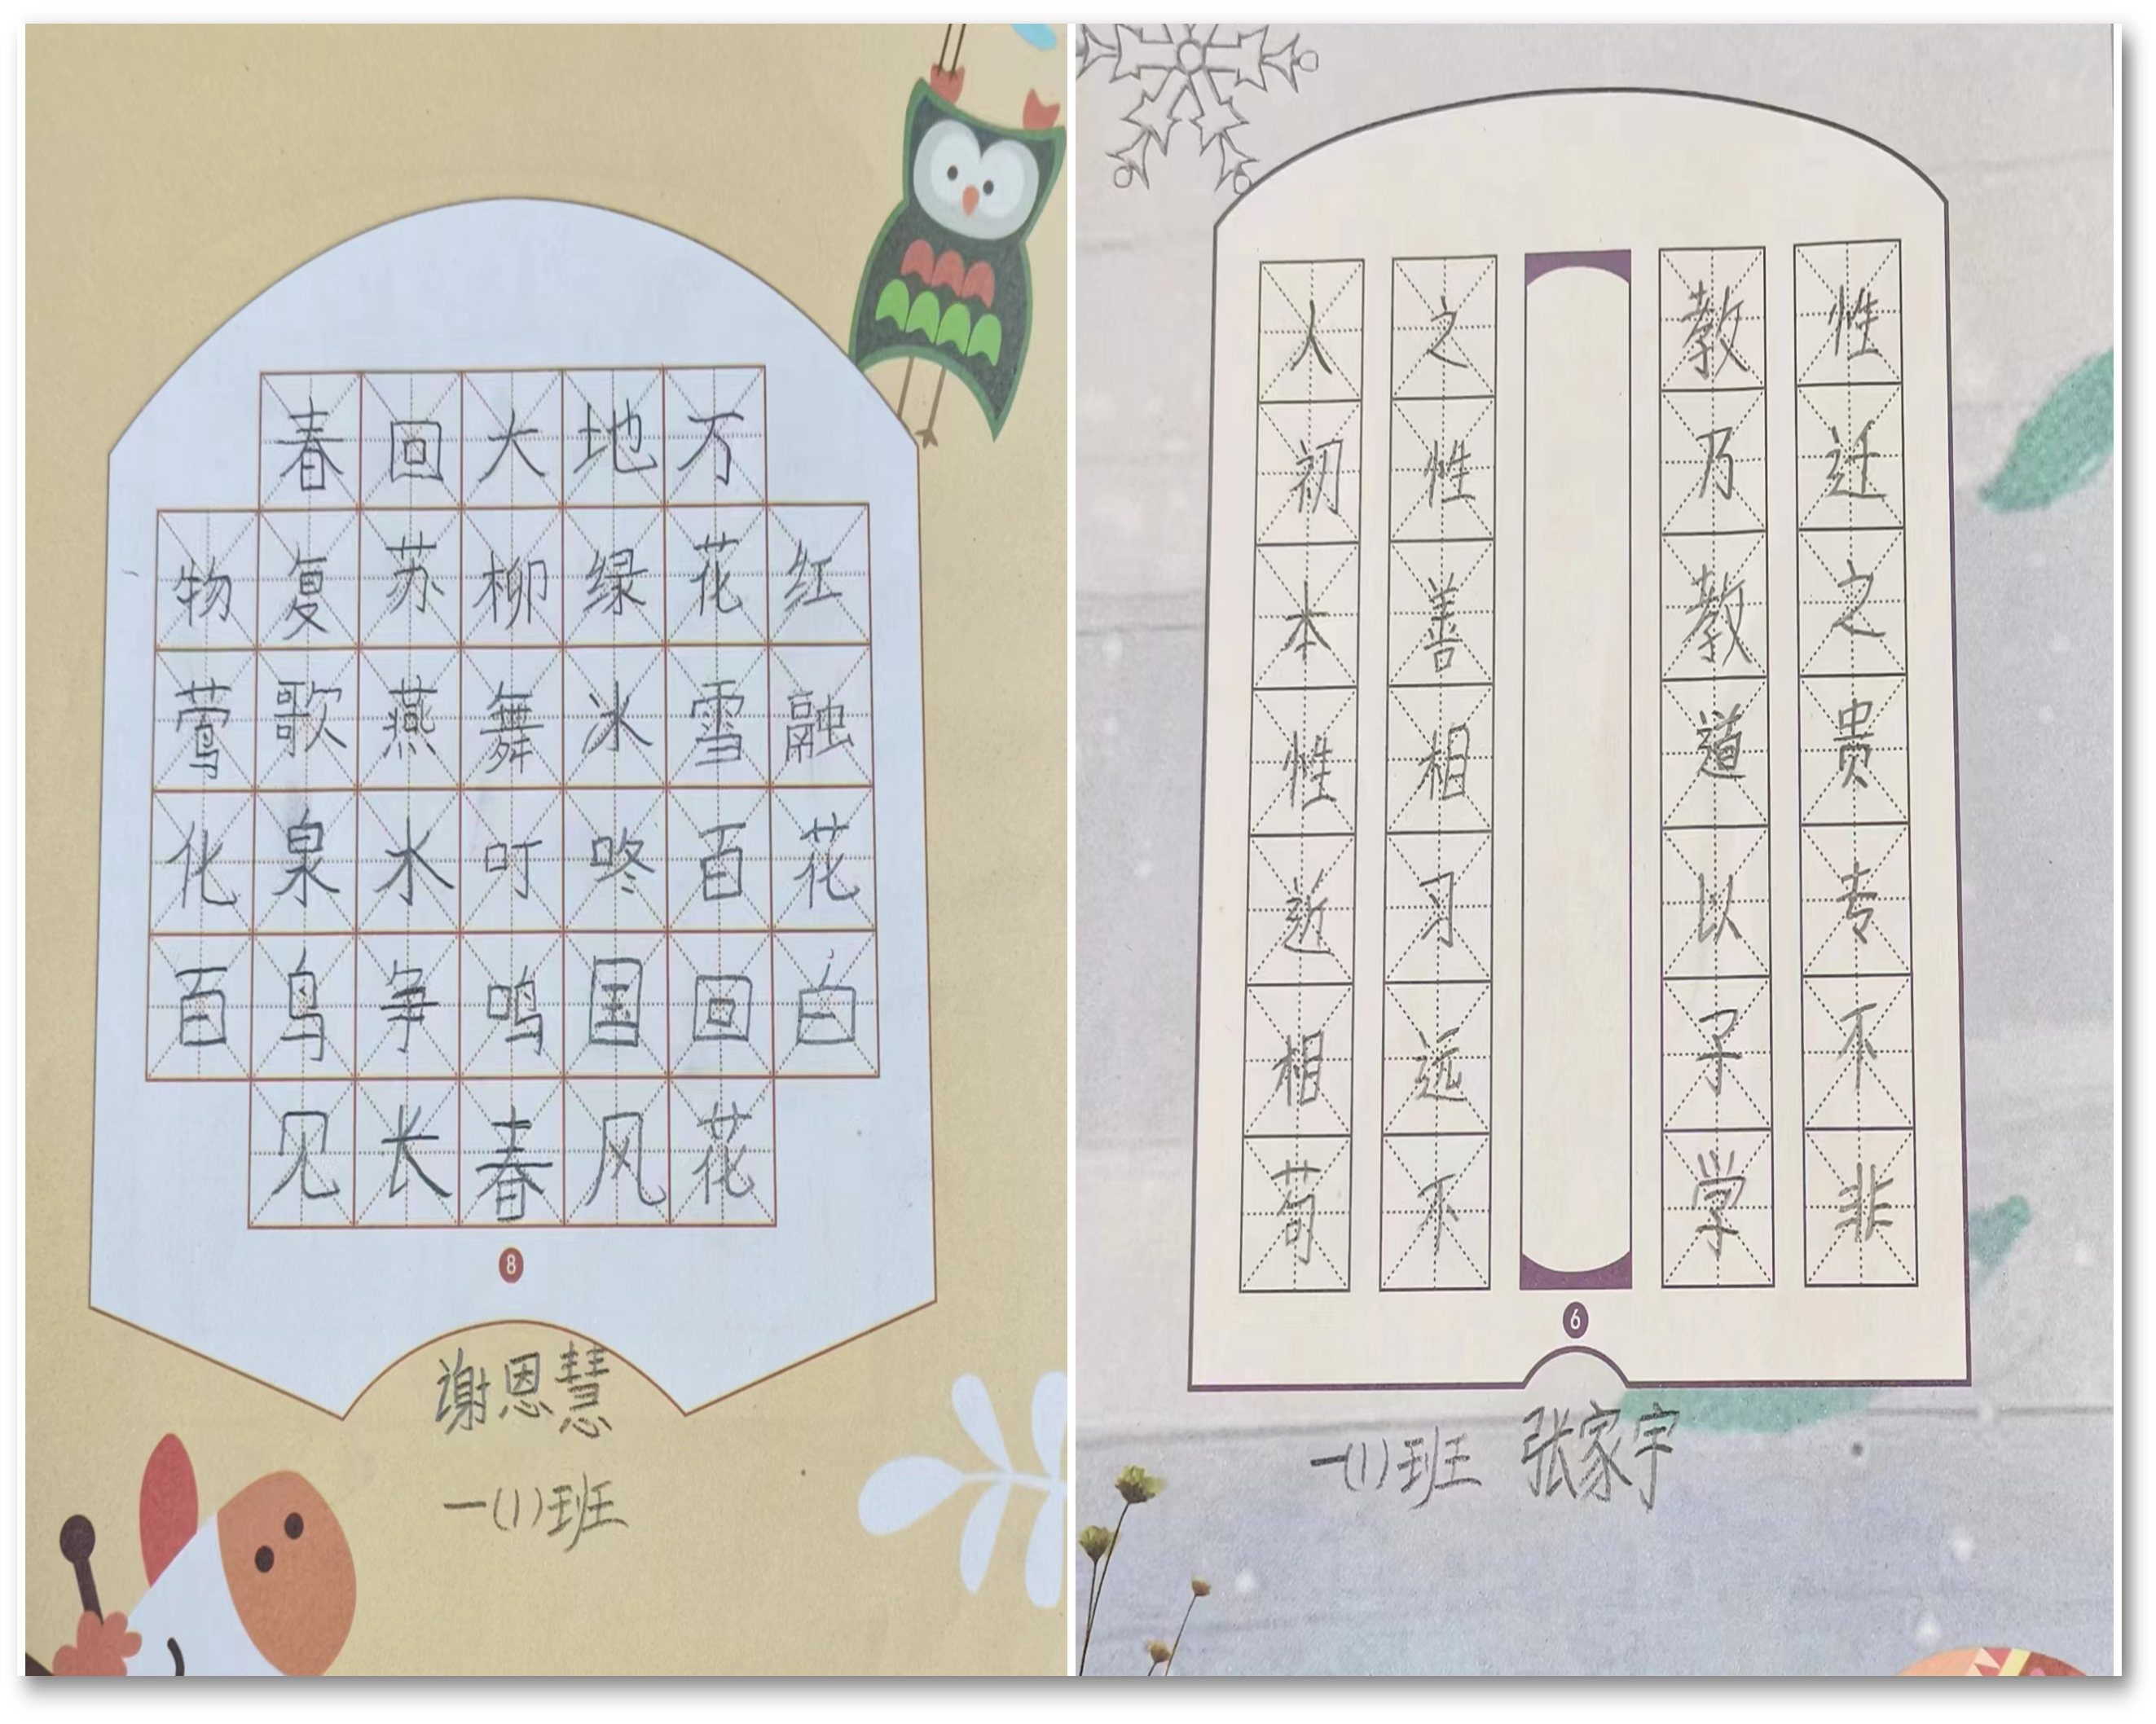 春回大地万
物复苏柳绿花红
莺歌燕舞冰雪融
化泉水叮咚百花
百鸟争鸣国回白
见长春风花
8
谢恩慧
一(1)班
人之
初性
本善
性相
近习
相远
苟不
教性
乃迁
教之
道贵
以专
子不
学非
6
一(1)班 张家宇